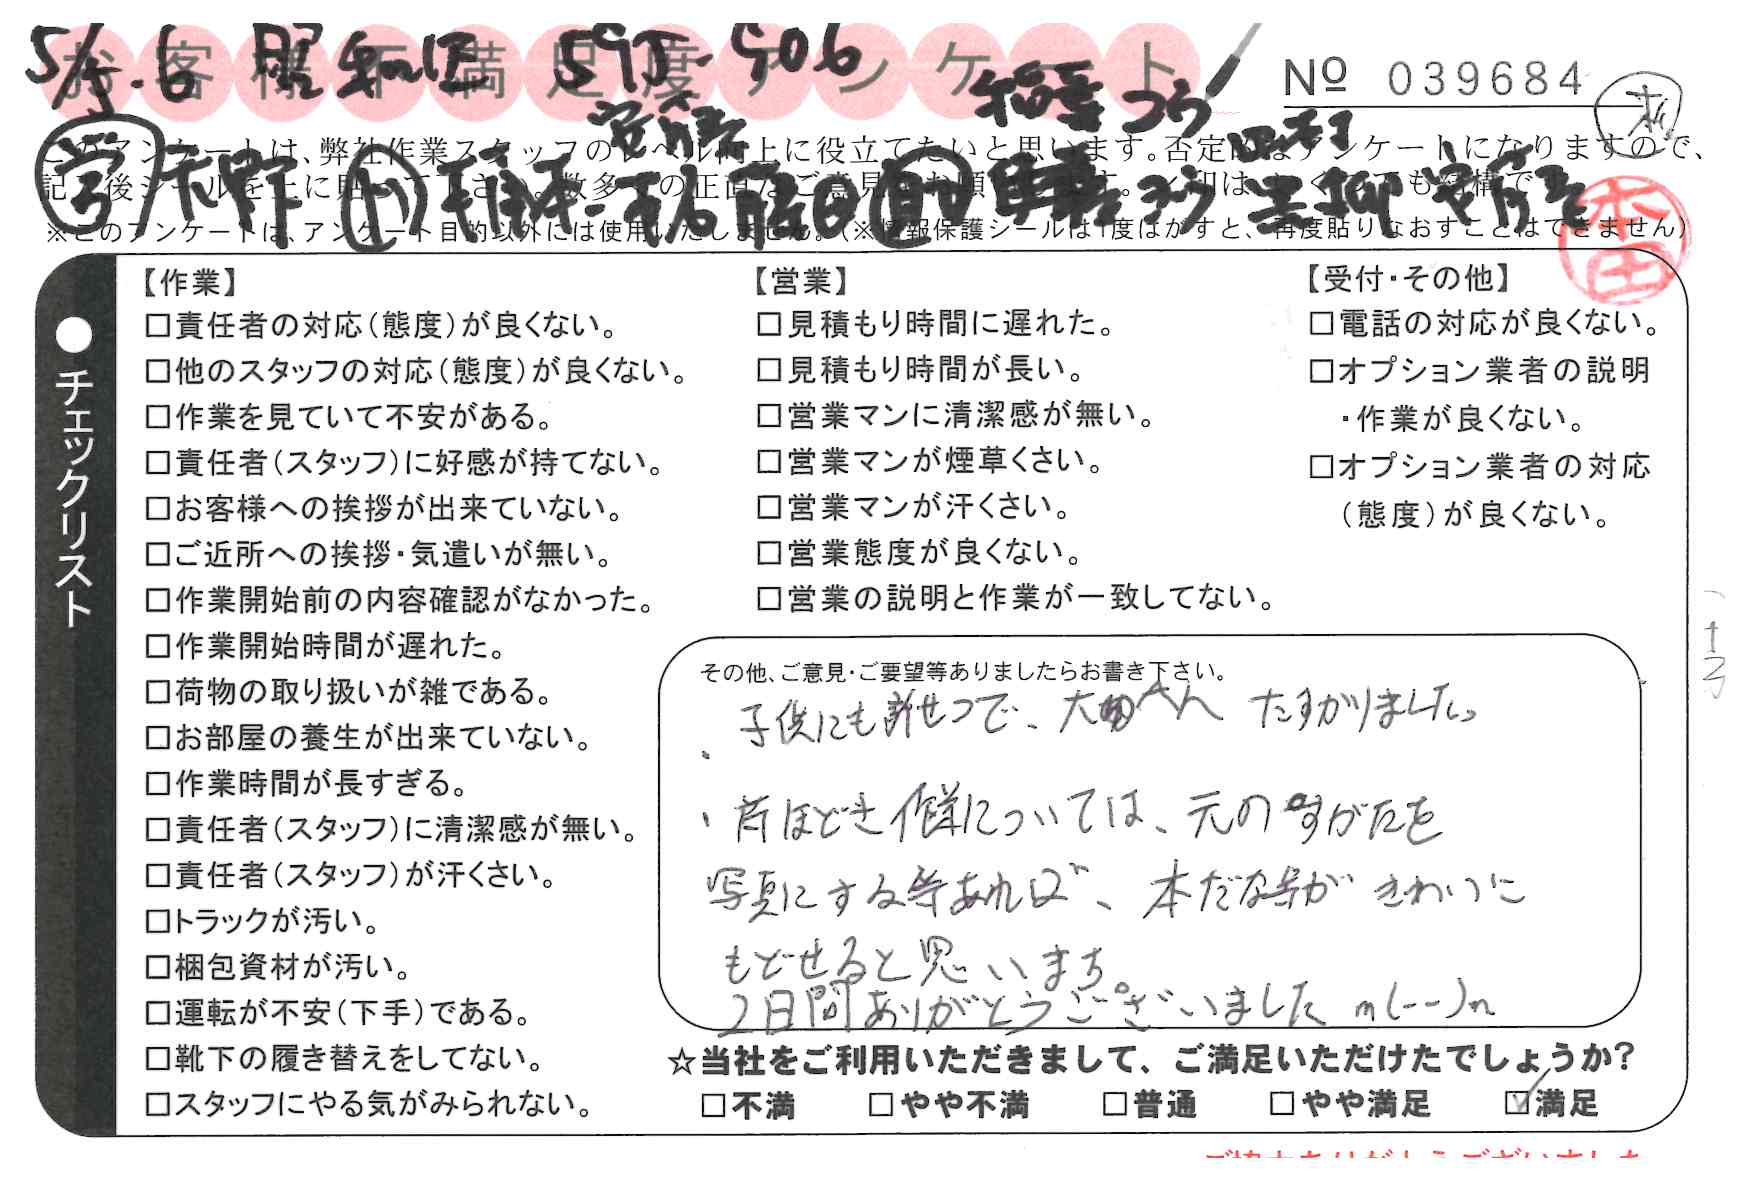 お客様不満足度アンケート
5/5.6 昭和区 595-906
Nº 039684
このアンケートは、弊社作業スタッフのレベル向上に役立てたいと思います。否定的なアンケートになりますので、
記入後シールを上に貼って下さい。数多くの正直なご意見をお願いします。
※このアンケートは、アンケート目的以外には使用いたしません。(※情報保護シールは1度はがすと、再度貼りなおすことはできません)
●チェックリスト
【作業】
□責任者の対応(態度)が良くない。
□他のスタッフの対応(態度)が良くない。
□作業を見ていて不安がある。
□責任者(スタッフ)に好感が持てない。
□お客様への挨拶が出来ていない。
□ご近所への挨拶・気遣いが無い。
□作業開始前の内容確認がなかった。
□作業開始時間が遅れた。
□荷物の取り扱いが雑である。
□お部屋の養生が出来ていない。
□作業時間が長すぎる。
□責任者(スタッフ)に清潔感が無い。
□責任者(スタッフ)が汗くさい。
□トラックが汚い。
□梱包資材が汚い。
□運転が不安(下手)である。
□靴下の履き替えをしてない。
□スタッフにやる気がみられない。
【営業】
□見積もり時間に遅れた。
□見積もり時間が長い。
□営業マンに清潔感が無い。
□営業マンが煙草くさい。
□営業マンが汗くさい。
□営業態度が良くない。
□営業の説明と作業が一致してない。
【受付・その他】
□電話の対応が良くない。
□オプション業者の説明
・作業が良くない。
□オプション業者の対応
(態度)が良くない。
その他、ご意見・ご要望等ありましたらお書き下さい。
子供にも親せつで、大変 たすかりました。
、荷ほどき作業については、元のすがたを
写真にする等あれば、本だな等がきれいに
もどせると思います
2日間ありがとうございました m(--)m
☆当社をご利用いただきまして、ご満足いただけたでしょうか?
□不満 □やや不満 □普通 □やや満足 ☑満足
ご協力ありがとうございました